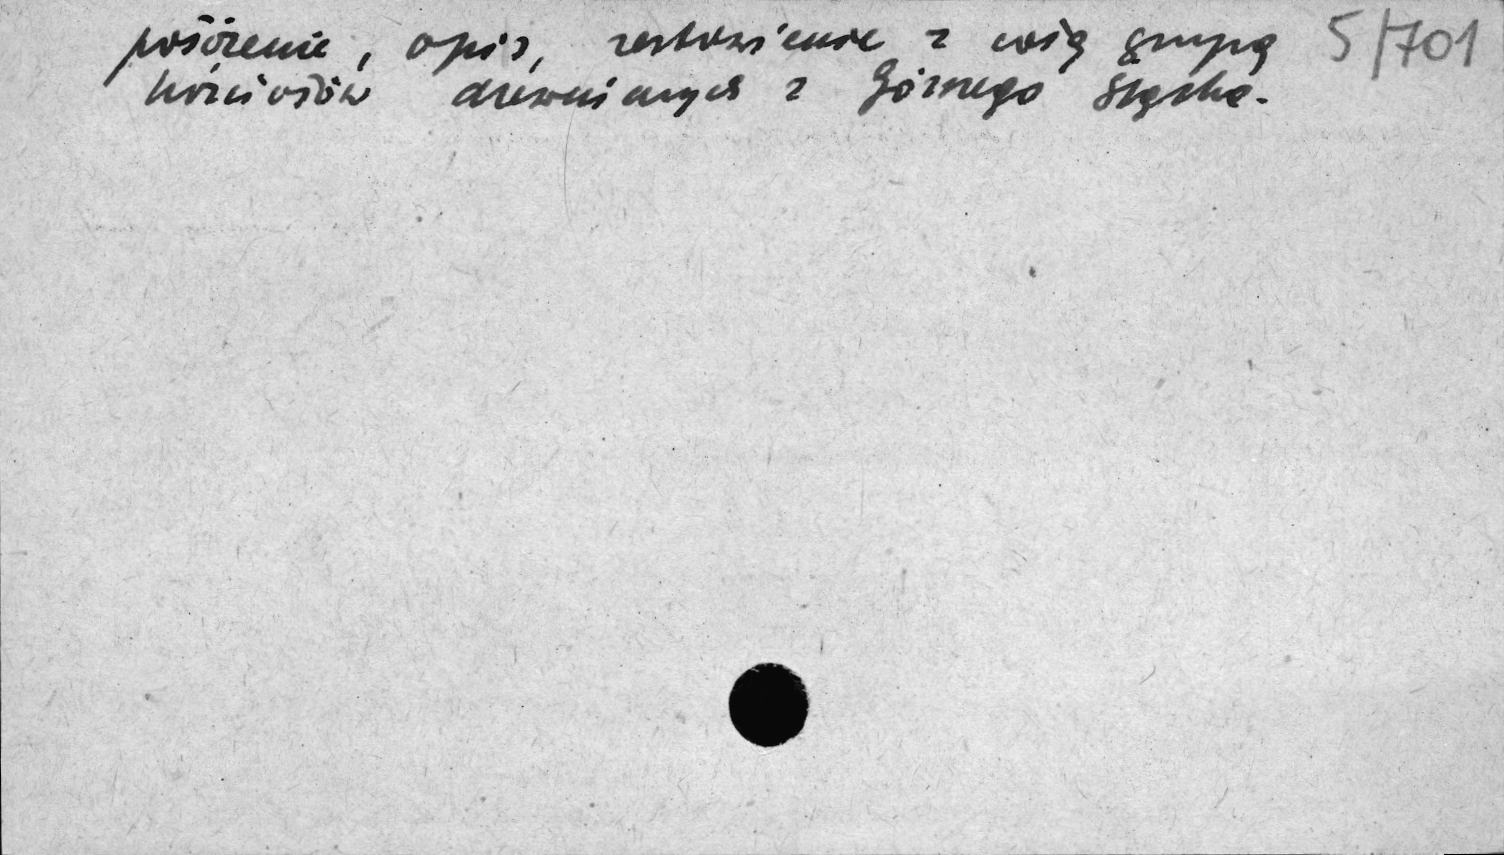 położenie, opis, zestawienie z całą grupą 5/701
kościołów drewnianych z Górnego Śląska.